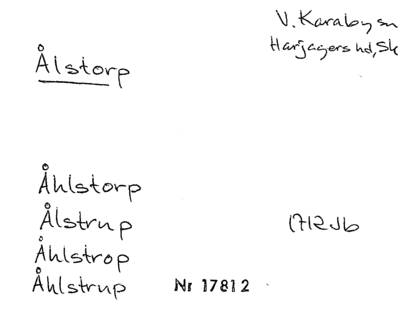 V. Karaby sn
Harjagers hd, Sk
Ålstorp
Åhlstorp
Ålstrup 1712 Jb
Åhlstrop
Åhlstrup Nr 17812